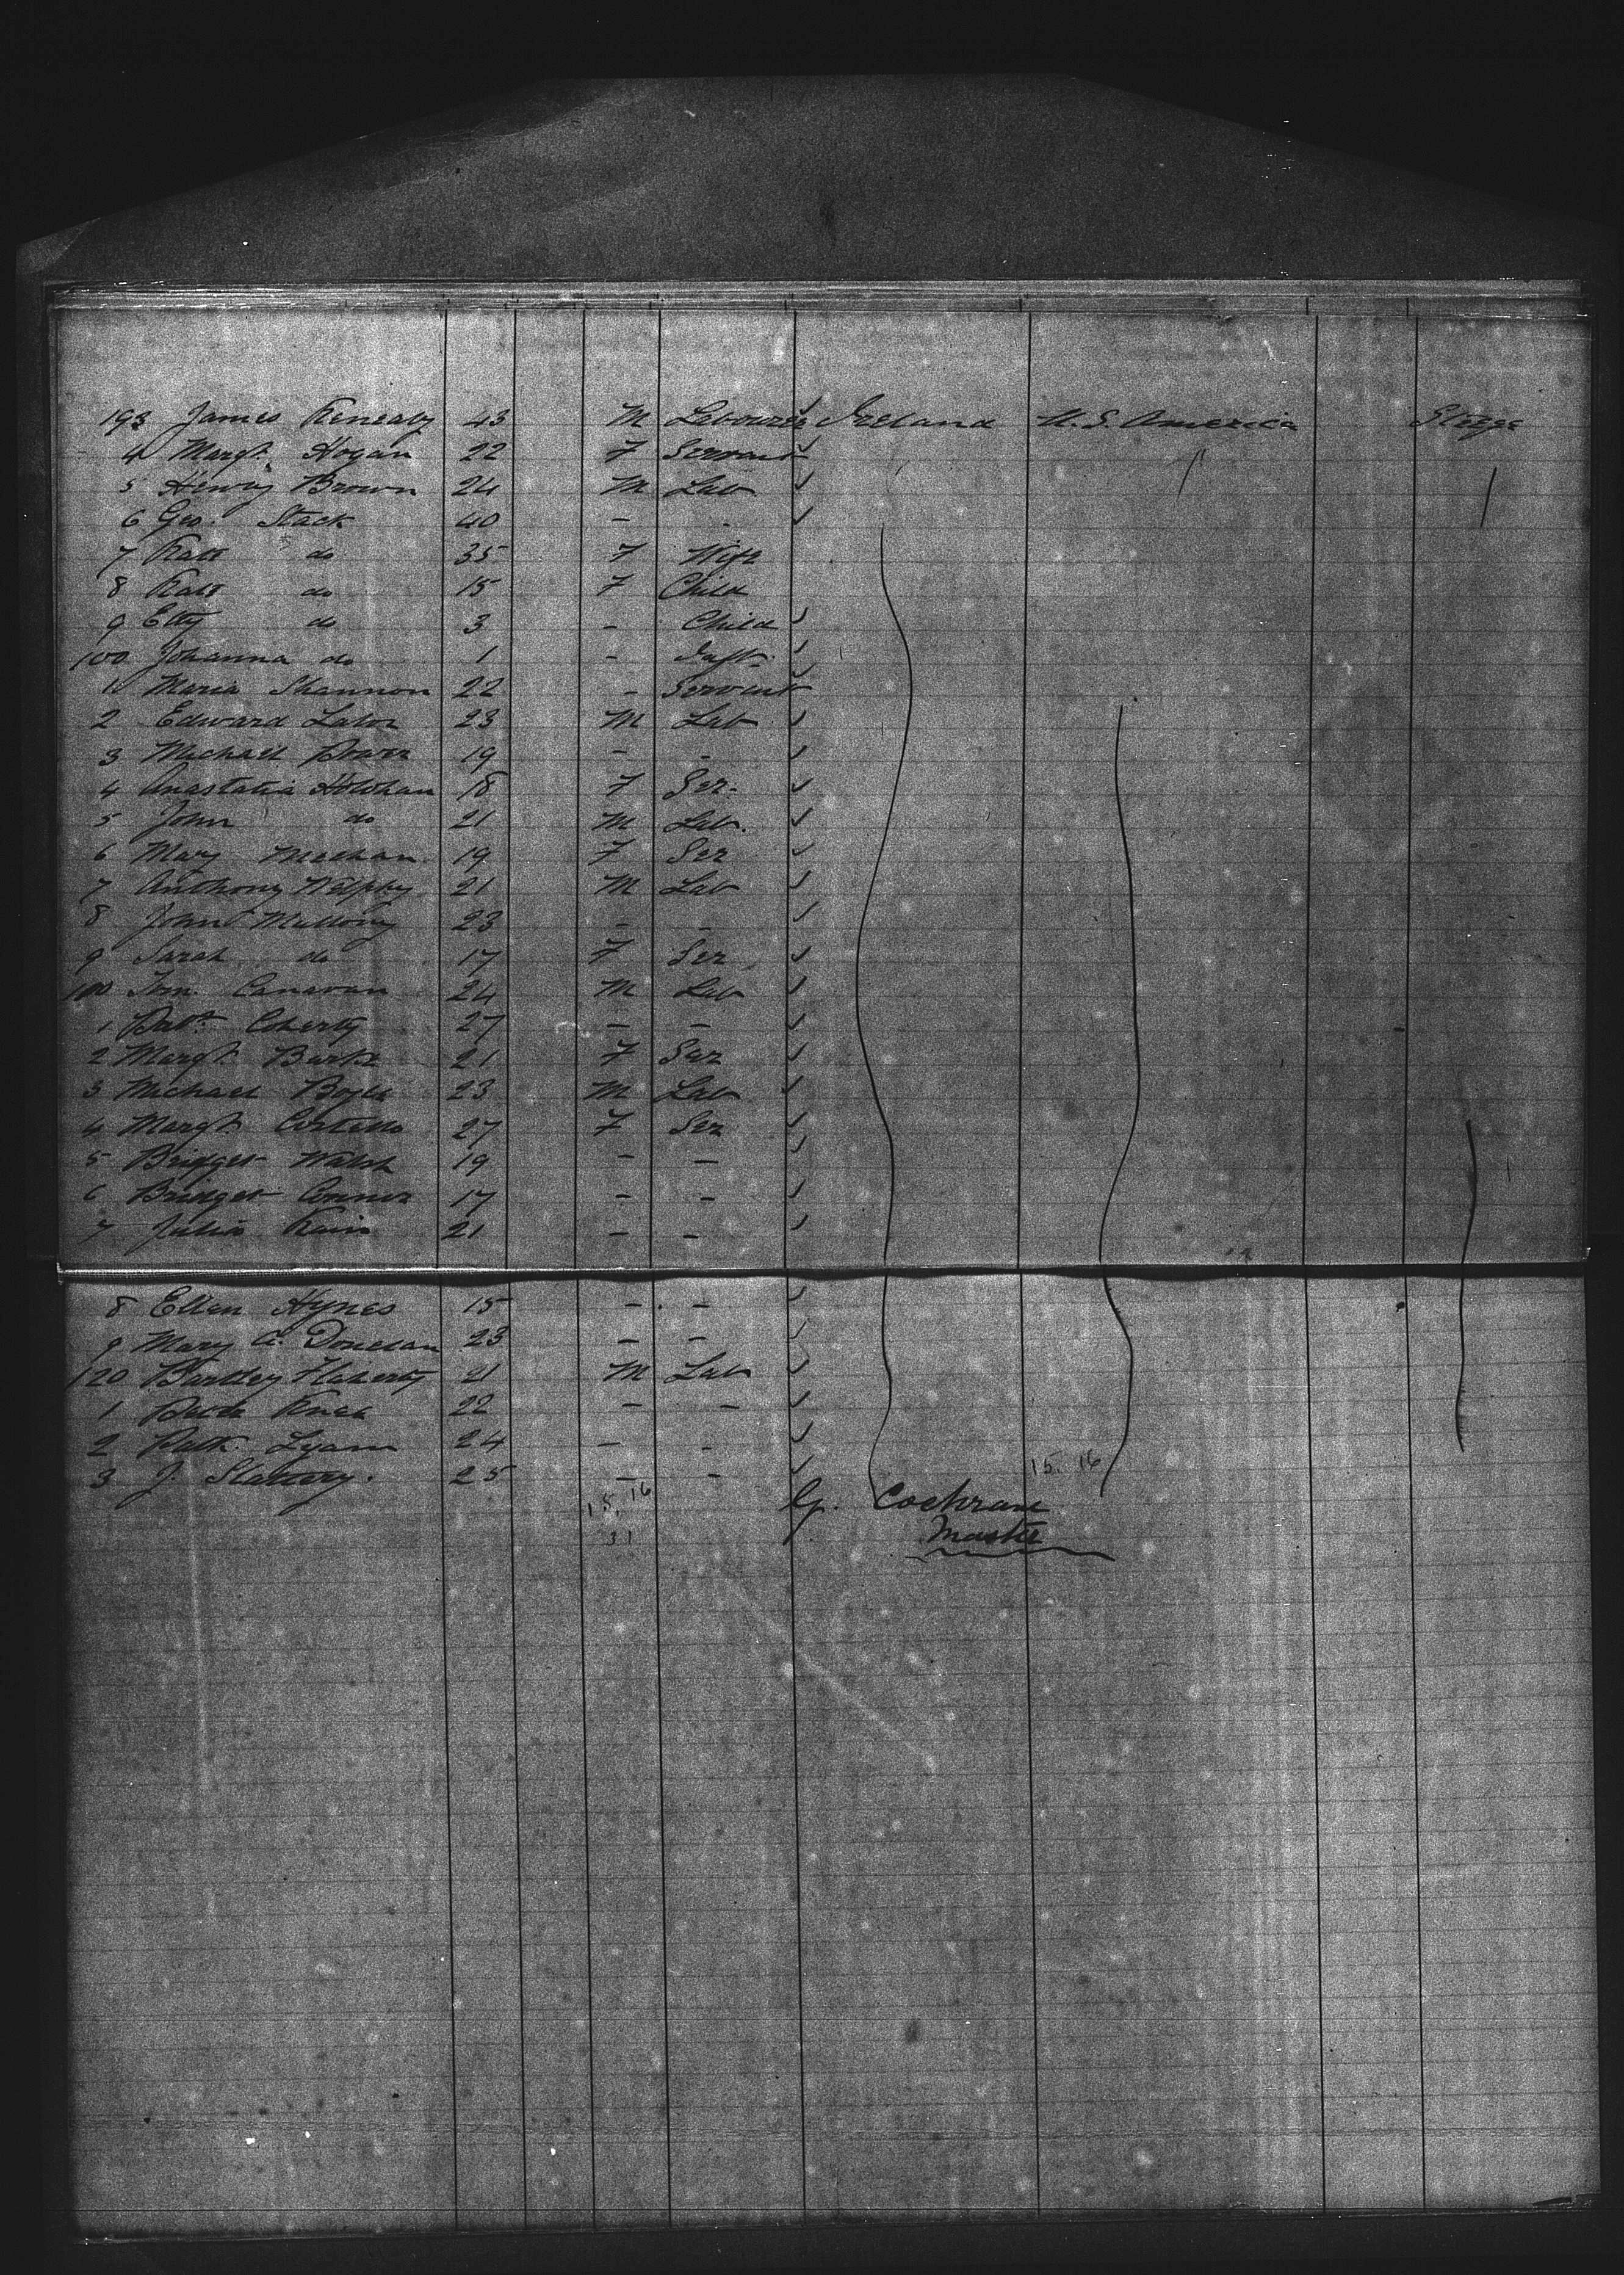 193 James Kenealy 43 M Labourer Ireland U.S. America Steege
4 Margt. Hogan 22 F Servant
5 Henry Brown 24 M Lab
6 Geo. Stack 40 - -
7 Kate do 35 F Wife
8 Kate do 15 F Child
9 Etty do 3 - Child
100 Johanna do 1 - Inft.
1 Maria Shannon 22 - Servant
2 Edward Lalor 23 M Lab
3 Michael Power 19 - -
4 Anastatia 18 F Ser.
5 John do 21 M Lab.
6 Mary Meehan 19 F Ser
7 Anthony 21 M Lab
8 John Mullony 23 - -
9 Sarah do 17 F Ser
100 Tom. Canavan 24 M Lab
1 Patk. Coherty 27 - -
2 Margt. Burke 21 F Ser
3 Michael Boyle 23 M Lab
4 Margt. Costello 27 F Ser
5 Bridget Walsh 19 - -
6 Bridget Connor 17 - -
7 Julia Kain 21 - -
8 Ellen Hynes 15 - -
9 Mary A. Donelan 23 - -
120 Bartley Flaherty 21 M Lab
1 22 - -
2 Patk. Lyam 24 - -
3 J. Slattery. 25 - -
15. 16 15. 16
G. Cochrane
31 Master